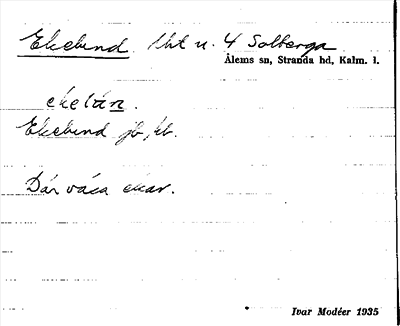 Ekelund lht u. 4 Solberga
Ålems sn, Stranda hd, Kalm. l.
ekelún.
Ekelund jb, kb.
Där växa ekar.
Ivar Modéer 1935